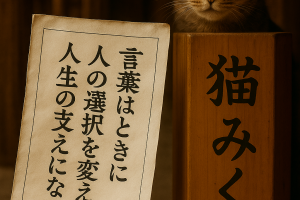 言葉はときに
人の選択を変え
人生の支えにな
猫みく